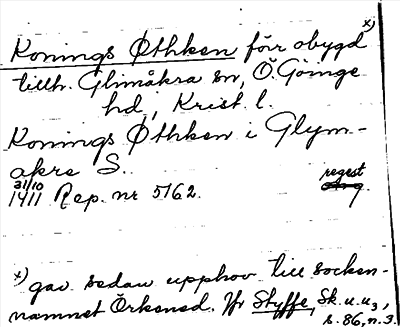 x)
Konings Øthken för obygd
tillh. Glimåkra sn, Ö. Göinge
hd, Krist. l.
Konings Øthken i Glym-
akre S. regest
31/10 1411 Rep. nr 5162.
x) gav sedan upphov till socken-
namnet Örkened. Jfr Styffe, Sk.u.u3,
s. 86, n. 3.